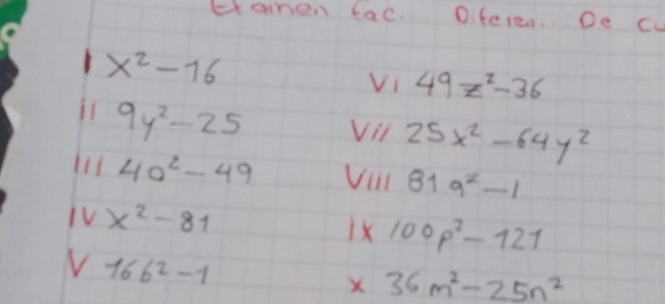 Examen fac. Diferen.. De cu
I x² - 16
II 9y² - 25
III 4a² - 49
IV x² - 81
V 16b² - 1
VI 49z² - 36
VII 25x² - 64y²
VIII 81a² - 1
IX 100p² - 121
X 36m² - 25n²